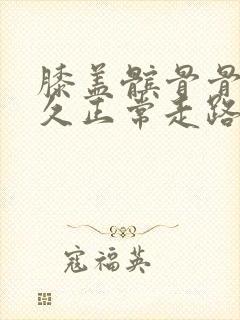 膝盖髌骨骨
久正常走路
寇福英